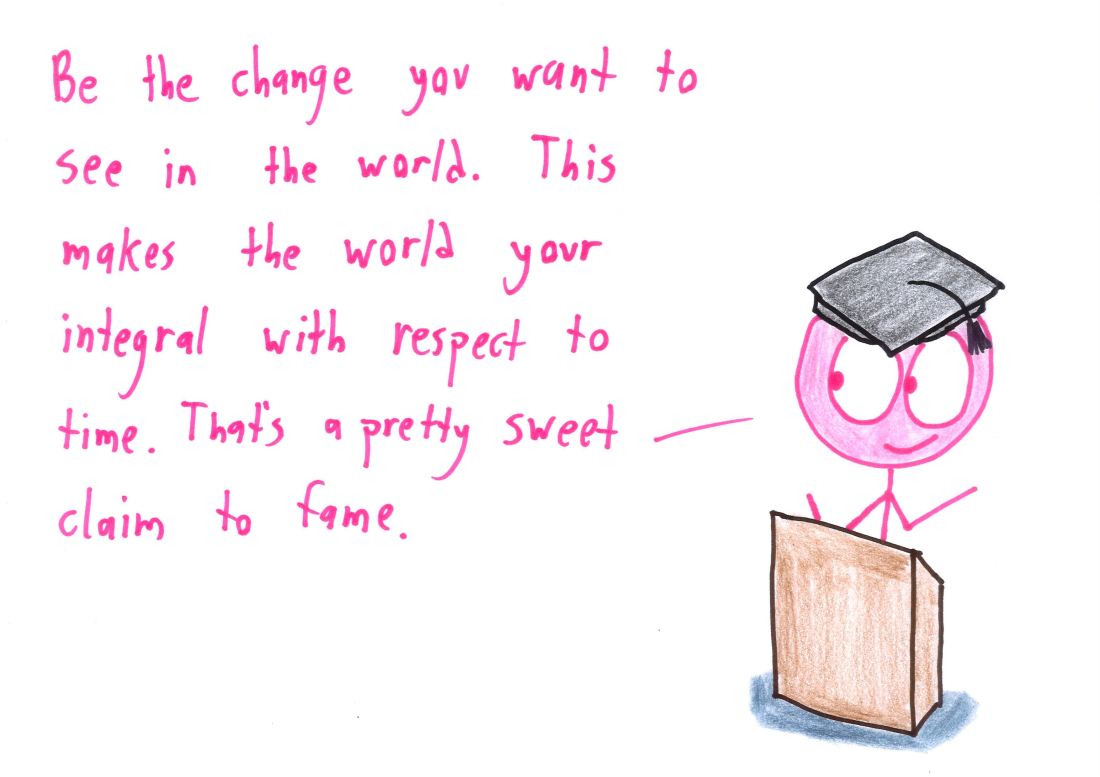 Be the change you want to
see in the world. This
makes the world your
integral with respect to
time. That's a pretty sweet
claim to fame.